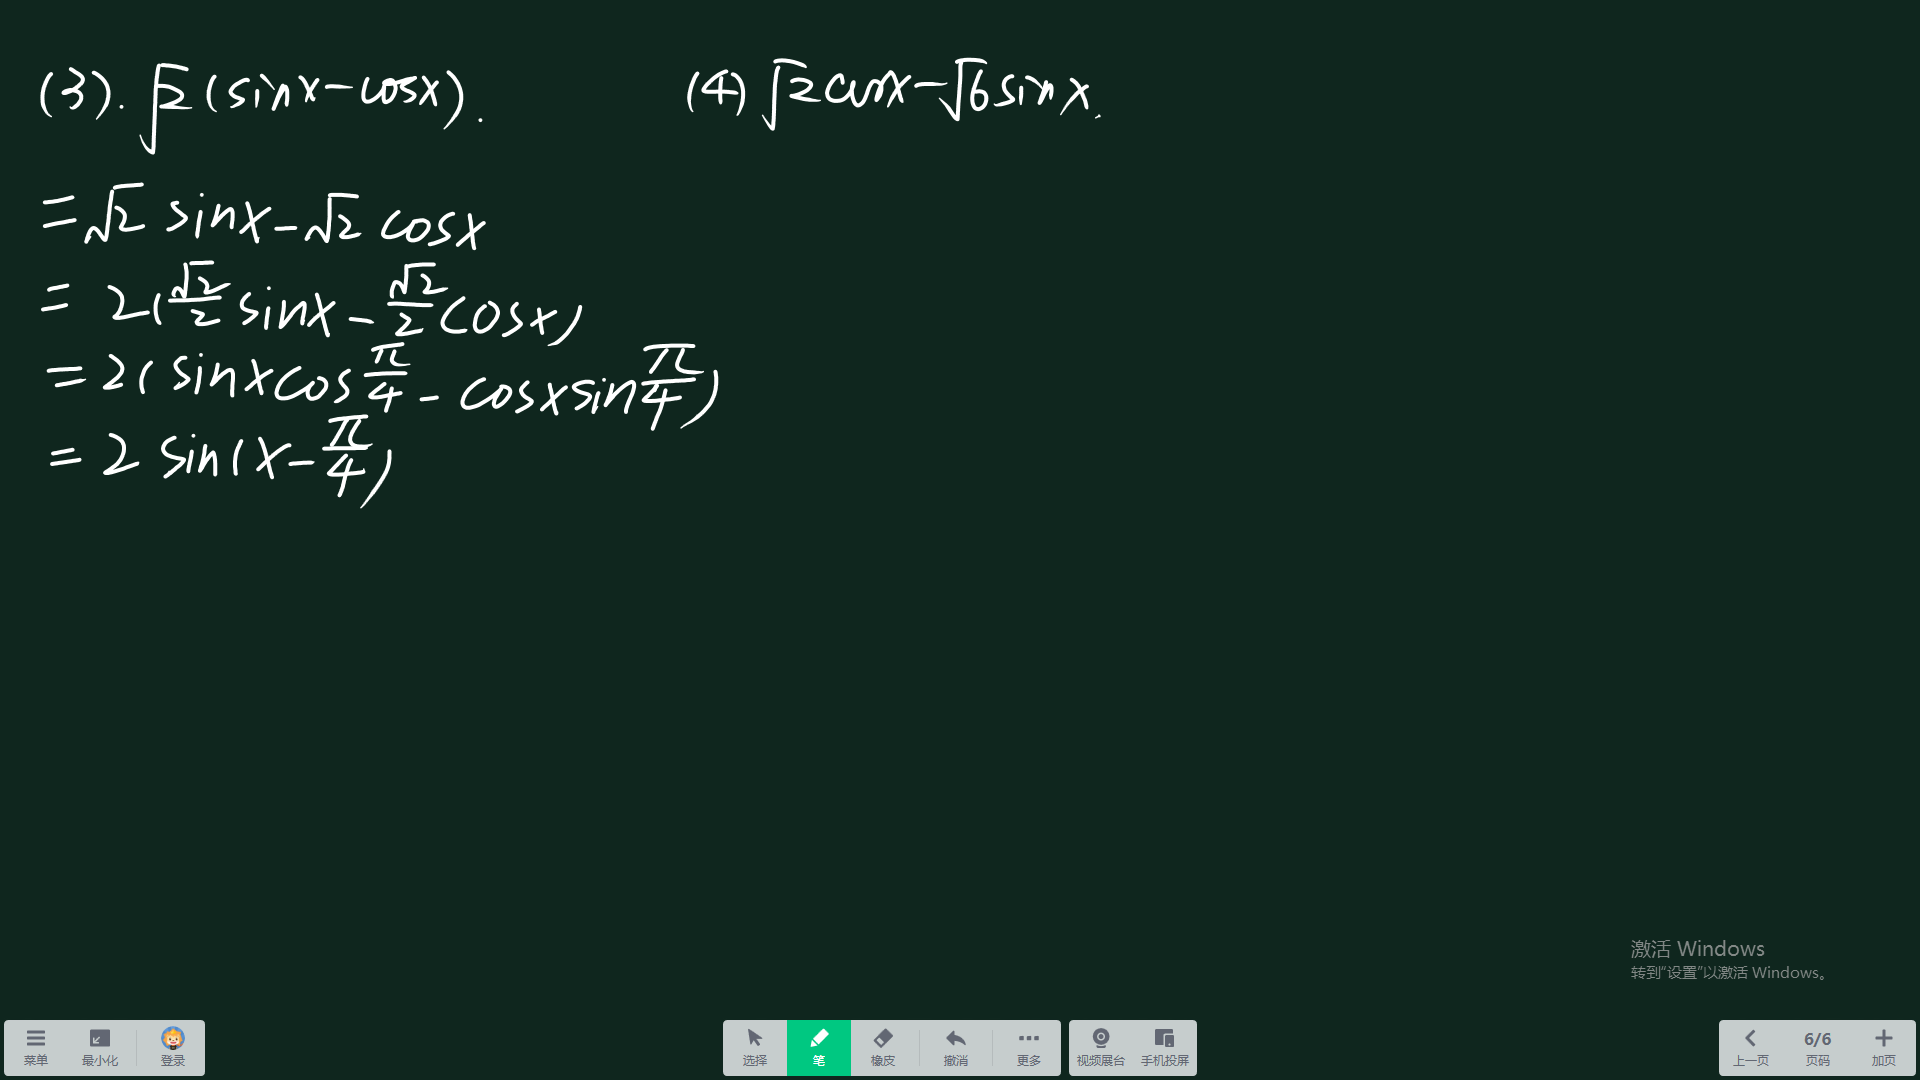 (3). √2 (sinx-cosx).
(4) √2cosx-√6sinx.
=√2 sinx-√2 cosx
= 2(√2/2 sinx - √2/2 cosx)
=2( sinxcos π/4 - cosxsin π/4 )
= 2 sin(x- π/4 )
激活 Windows
转到“设置”以激活 Windows。
菜单
最小化
登录
选择
笔
橡皮
撤消
更多
视频展台
手机投屏
上一页
6/6
页码
加页